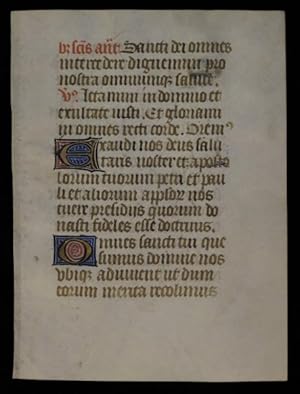 De sc̄is añt. Sancti dei omnes
intercedere dignemini pro
nostra omniumq₃ salute.
V̓. Letamini in domino et
exultate iusti. Et gloriami
ni omnes recti corde. Oremꝰ
Exaudi nos deus salu
taris noster et aposto
lorum tuorum petri et pau
li et aliorum apl̄or nos
tuere presidijs quorum do
nasti fideles esse doctrinis.
Omnes sancti tui que
sumus domine nos
vbiq₃ adiuuent ut dum
eorum merita recolimus